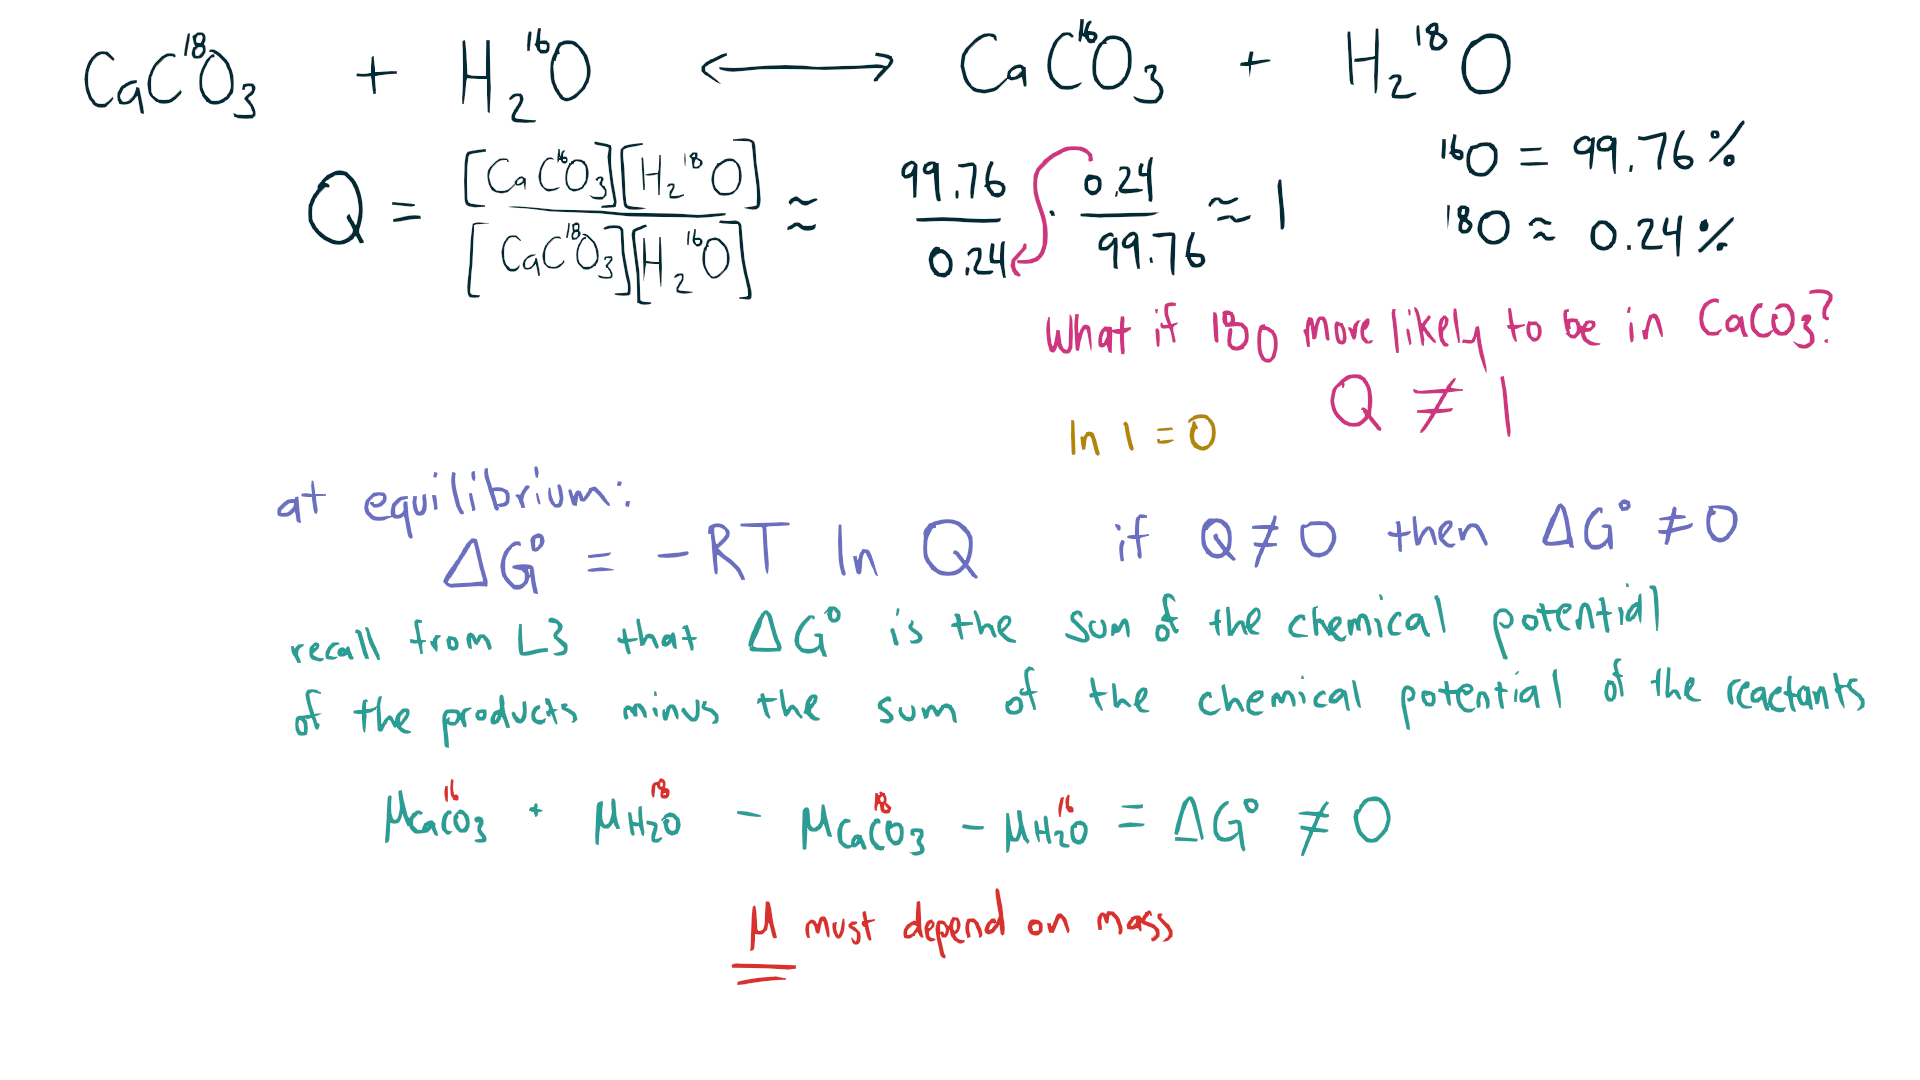 CaC¹⁸O₃ + H₂¹⁶O ⟷ CaC¹⁶O₃ + H₂¹⁸O
Q = [CaC¹⁶O₃][H₂¹⁸O] / [CaC¹⁸O₃][H₂¹⁶O] ≈ 99.76/0.24 · 0.24/99.76 ≈ 1
¹⁶O = 99.76%
¹⁸O ≈ 0.24%
What if 18O more likely to be in CaCO₃?
Q ≠ 1
ln 1 = 0
at equilibrium:
ΔG° = -RT ln Q if Q ≠ 0 then ΔG° ≠ 0
recall from L3 that ΔG° is the sum of the chemical potential
of the products minus the sum of the chemical potential of the reactants
μCaC¹⁶O₃ + μH₂¹⁸O - μCaC¹⁸O₃ - μH₂¹⁶O = ΔG° ≠ 0
μ must depend on mass